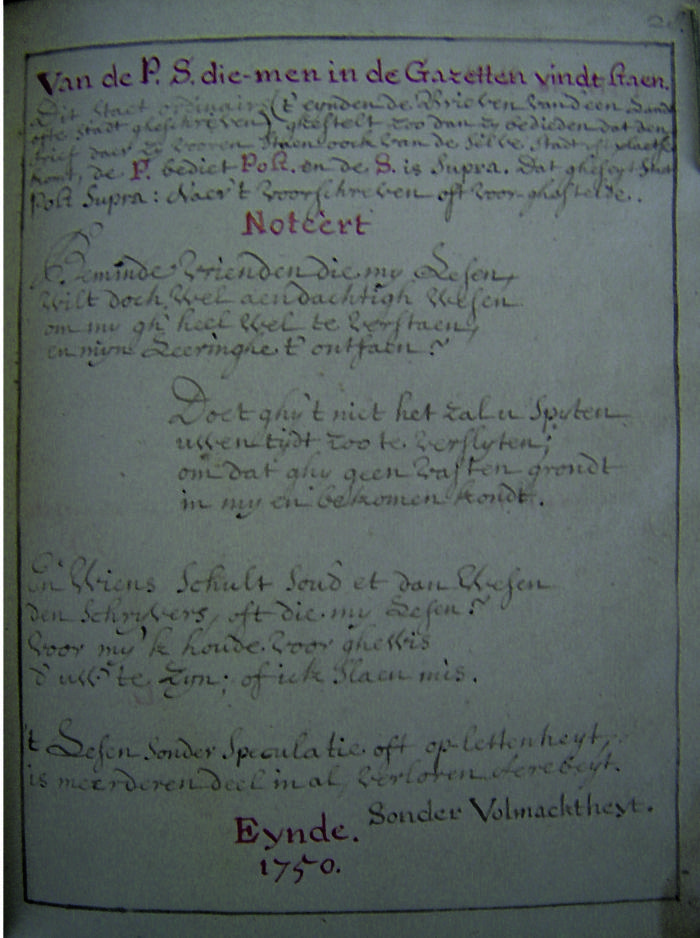 2
Van de P. S. die-men in de Gazetten vindt staen.
Dit staet ordinair (t' eynden de Brieven van een Landt
ofte stadt gheschreven) ghestelt zoo dan zy bedieden dat den
brief daer zy vooren staen oock van de selve stadt plaetse
komt, de P. bediet Post. en de S. is Supra. Dat gheseyt
Post Supra: Naer't voorschreven oft voor-ghestelde.
Noteert
Beminde Vrienden die my Lesen,
wilt doch wel aendachtigh Wesen
om my gh'heel wel te verstaen,
en myn Leeringhe t' ontfaen?
Doet ghy't niet het zal u Spyten
uwen tydt zoo te verslyten;
om dat ghy geen vasten grondt
in my en bekomen kondt.
En Wiens Schult Soud et dan Wesen
den Schryvers, oft die my Lesen?
Voor my 'k houde voor ghewis
d' uw' te zyn; of ick slaen mis.
't Lesen Sonder Speculatie oft op-lettenheyt,
is meerderen deel in al, verloren Aerebeyt.
Sonder Volmacktheyt.
Eynde.
1750.